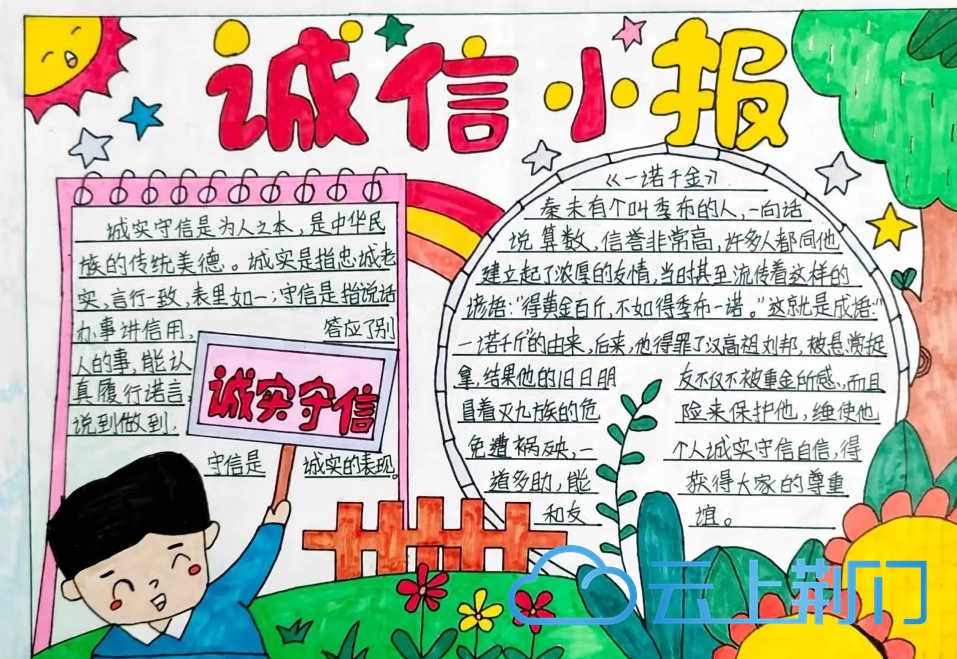 诚信小报
诚实守信是为人之本，是中华民
族的传统美德。诚实是指忠诚老
实，言行一致，表里如一；守信是指说话
办事讲信用，答应了别
人的事，能认
真履行诺言，
说到做到．
守信是 诚实的表现。
诚实守信
《一诺千金》
秦末有个叫季布的人，一向话
说算数，信誉非常高，许多人都同他
建立起了浓厚的友情，当时甚至流传着这样的
谚语：“得黄金百斤，不如得季布一诺。”这就是成语：“
一诺千斤”的由来，后来，他得罪了汉高祖刘邦，被悬赏捉
拿，结果他的旧日朋 友不仅不被重金所惑，而且
冒着灭九族的危 险来保护他，使他
免遭祸殃，一 个人诚实守信自信，得
道多助，能 获得大家的尊重
和友 谊。
云上荆门